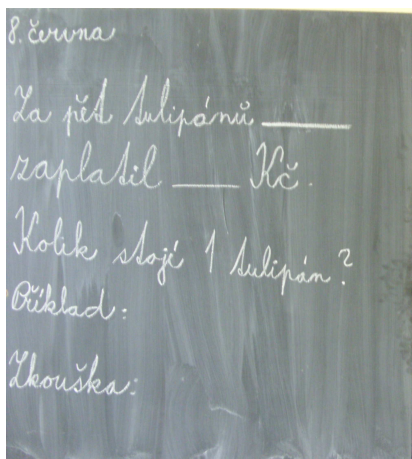 8. června
Za pět tulipánů ____
zaplatil ___ Kč.
Kolik stojí 1 tulipán?
Příklad:
Zkouška: